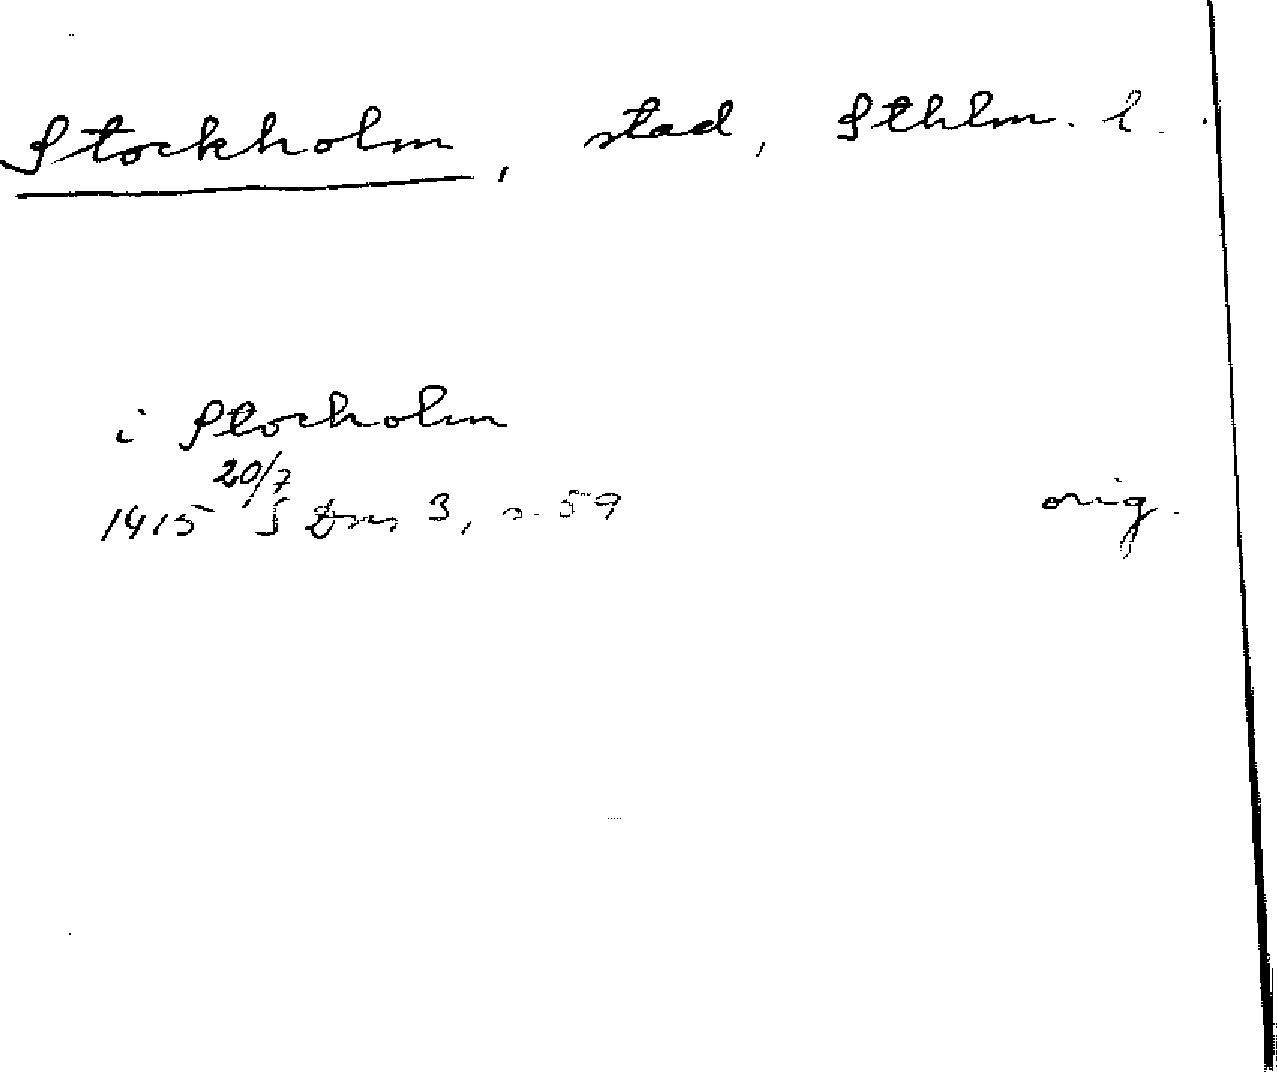 Stockholm, stad, Sthlm. l.
i Stocholm
20/7
1415 S Dns 3, s. 59 orig.